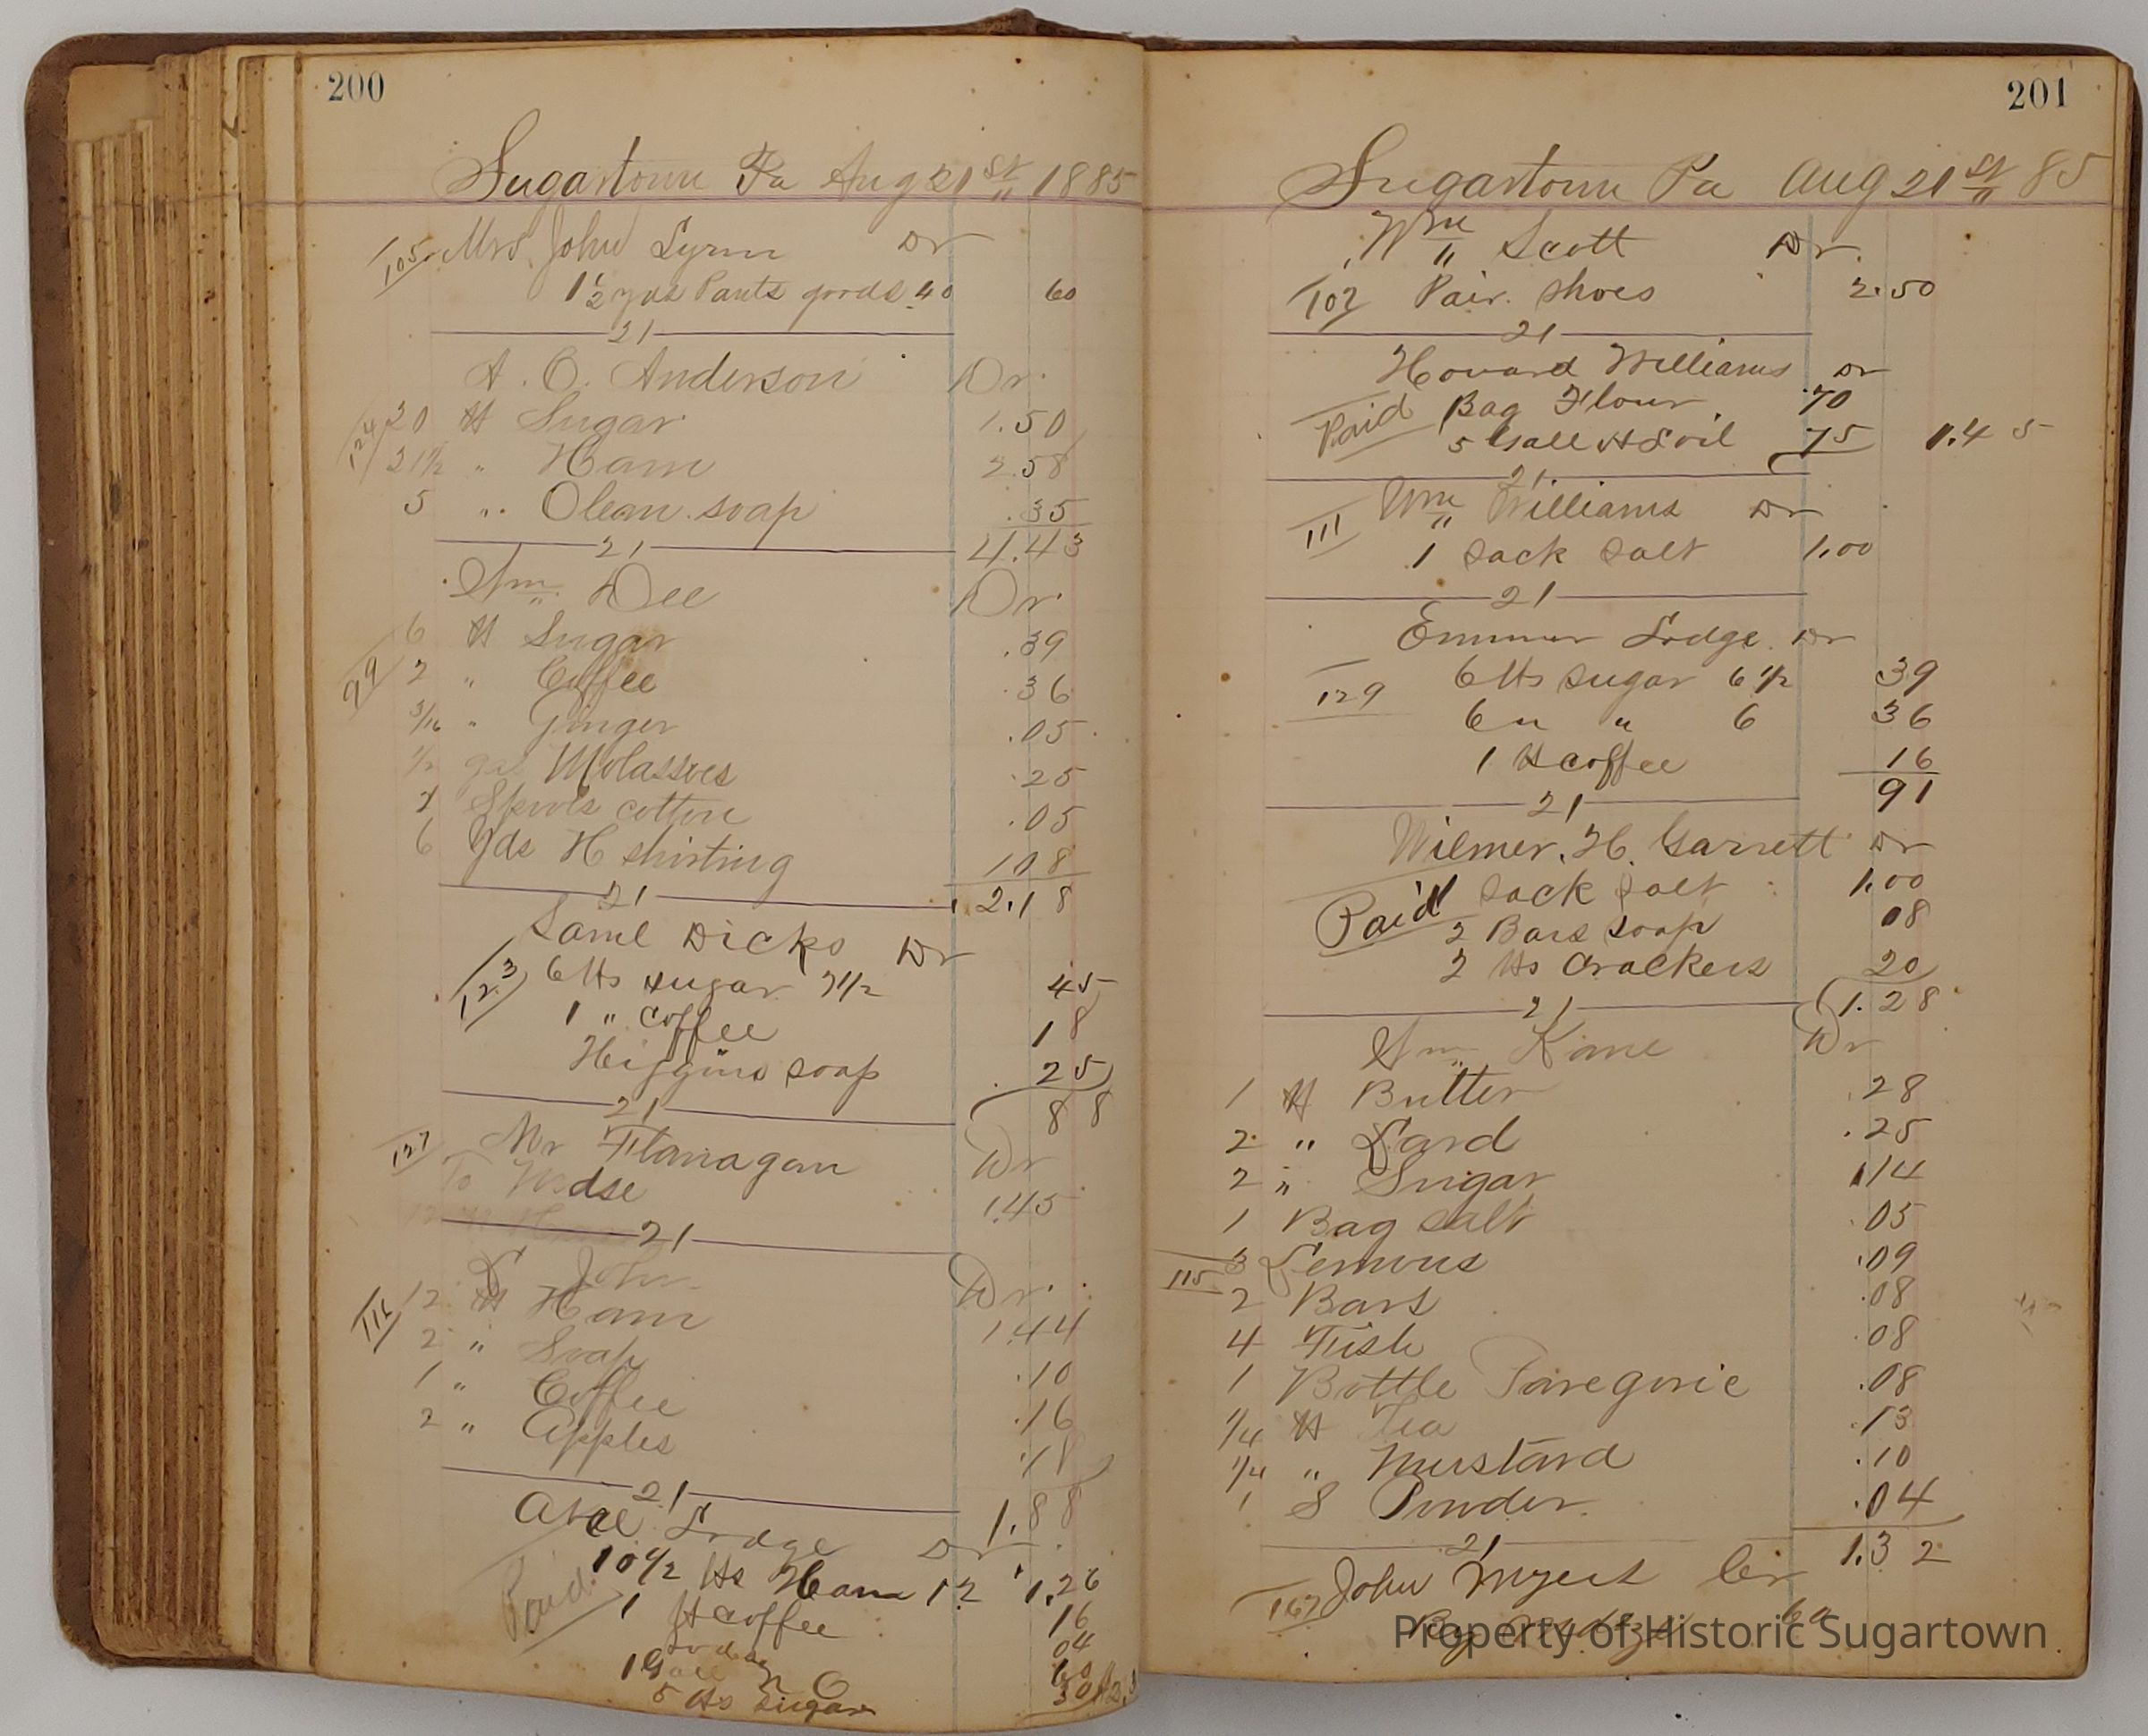 200
Sugartown Pa Aug 21st 1885
105 Mrs. John Lynn Dr
1 1/2 yds Pants goods 40 60
21
A. O. Anderson Dr.
124 20 # Sugar 1.50
21 1/2 " Ham 2.58
5 " Olean soap .35
21 4.43
Wm Dee Dr.
6 # Sugar .39
99 2 " Coffee .36
3/16 " Ginger .05
1/2 gal Molasses .25
Spools cotton .05
6 yds H shirting 1 08
21 2.18
Saml Dicks Dr
123 6 lbs sugar 7 1/2 45
1 " coffee 18
Higgins soap 25
21 88
127 Mr Flanagan Dr
To Mdse 1.45
21
John Dr.
116 12 # Ham 1.44
2 " Soap .10
1 " Coffee .16
2 " Apples .18
21 1.88
Lodge Dr
Paid 10 1/2 lbs Ham 12 1.26
1 # coffee 16
04
1 Gall O
5 lbs sugar 30
201
Sugartown Pa Aug 21st 85
Wm Scott Dr.
102 Pair shoes 2.50
21
Howard Williams Dr
Paid Bag Flour .70
5 Galls H L oil 75 1.45
21
111 Wm Williams Dr
1 sack salt 1.00
21
Emmer Lodge Dr
6 lbs sugar 6 1/2 39
129 6 " " 6 36
1 # coffee 16
21 91
Wilmer. H. Garrett Dr
Paid 1 sack salt 1.00
2 Bars soap 08
2 lbs crackers 20
21 1.28
Wm Kane Dr
1 # Butter .28
2 " Lard .25
2 " Sugar .14
1 Bag salt .05
115 3 Lemons .09
2 Bars .08
4 Fish .08
1 Bottle Paregoric .08
1/4 # Tea .13
1/4 " Mustard .10
1 S Powder .04
21 1.32
167 John Myers Cr
By
Property of Historic Sugartown